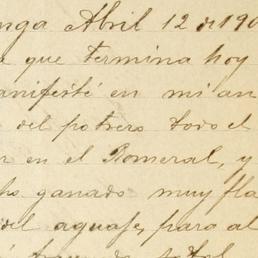 nga Abril 12 de 190
que termina hoy
anifesté en mi an
del potrero todo el
r en el Romeral, y
cho ganado muy fla
del aguaje, para al